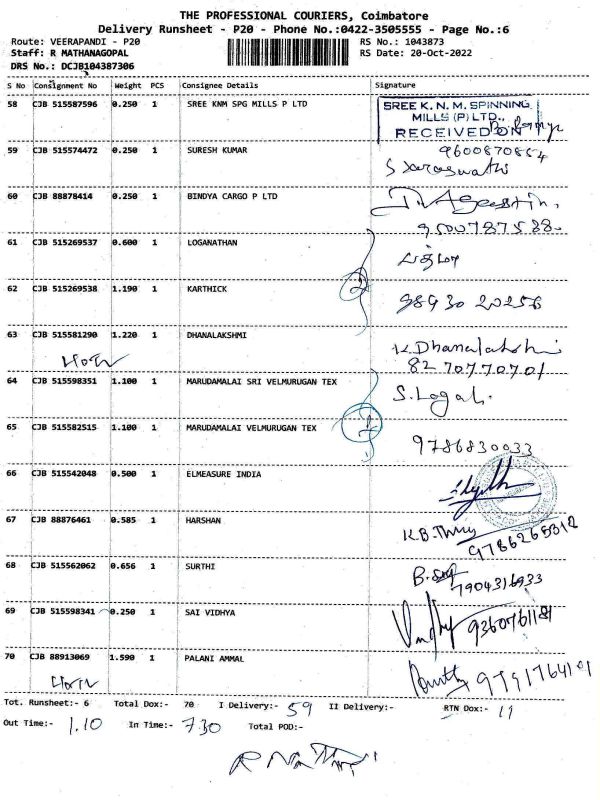 THE PROFESSIONAL COURIERS, Coimbatore
Delivery Runsheet - P20 - Phone No.:0422-3505555 - Page No.:6
Route: VEERAPANDI - P20 RS No.: 1043873
Staff: R MATHANAGOPAL RS Date: 20-Oct-2022
DRS No.: DCJB104387306
S No Consignment No Weight PCS Consignee Details Signature
58 CJB 515587596 0.250 1 SREE KNM SPG MILLS P LTD SREE K. N. M. SPINNING
MILLS (P) LTD.,
RECEIVED ON
59 CJB 515574472 0.250 1 SURESH KUMAR 9600870864
S Saraswathi
60 CJB 88878414 0.250 1 BINDYA CARGO P LTD
9500787588
61 CJB 515269537 0.600 1 LOGANATHAN
62 CJB 515269538 1.190 1 KARTHICK 2 98930 20256
63 CJB 515581290 1.220 1 DHANALAKSHMI K.Dhanalakshmi
8270770701
64 CJB 515598351 1.100 1 MARUDAMALAI SRI VELMURUGAN TEX S.Logah.
65 CJB 515582515 1.100 1 MARUDAMALAI VELMURUGAN TEX
9786830033
66 CJB 515542048 0.500 1 ELMEASURE INDIA
67 CJB 88876461 0.585 1 HARSHAN K.B.
9786265312
68 CJB 515562062 0.656 1 SURTHI
7904316933
69 CJB 515598341 0.250 1 SAI VIDHYA 9360761181
70 CJB 88913069 1.590 1 PALANI AMMAL
Tot. Runsheet:- 6 Total Dox:- 70 I Delivery:- 59 II Delivery:- RTN Dox:- 11
Out Time:- 1.10 In Time:- 7.30 Total POD:-